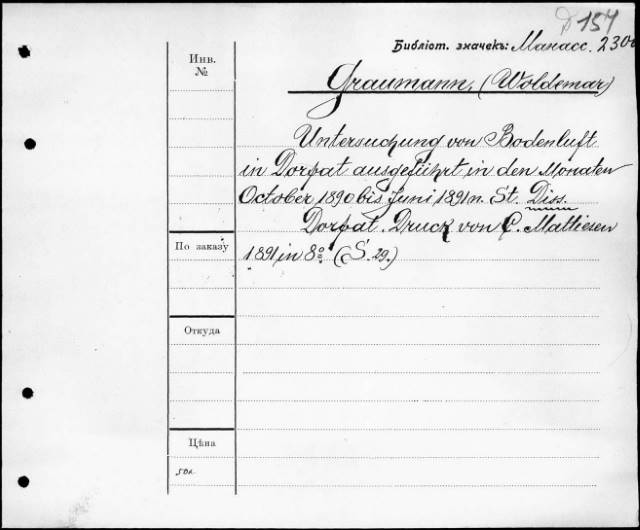 D 154
Библіот. значекъ: Манасс. 230
Инв.
№
Graumann, (Woldemar)
Untersuchung von Bodenluft
in Dorpat ausgeführt in den Monaten
October 1890 bis Juni 1891 n. St. Diss.
Dorpat. Druck von C. Mattiesen
По заказу
1891 in 8° (S. 29.)
Откуда
Цѣна
50к